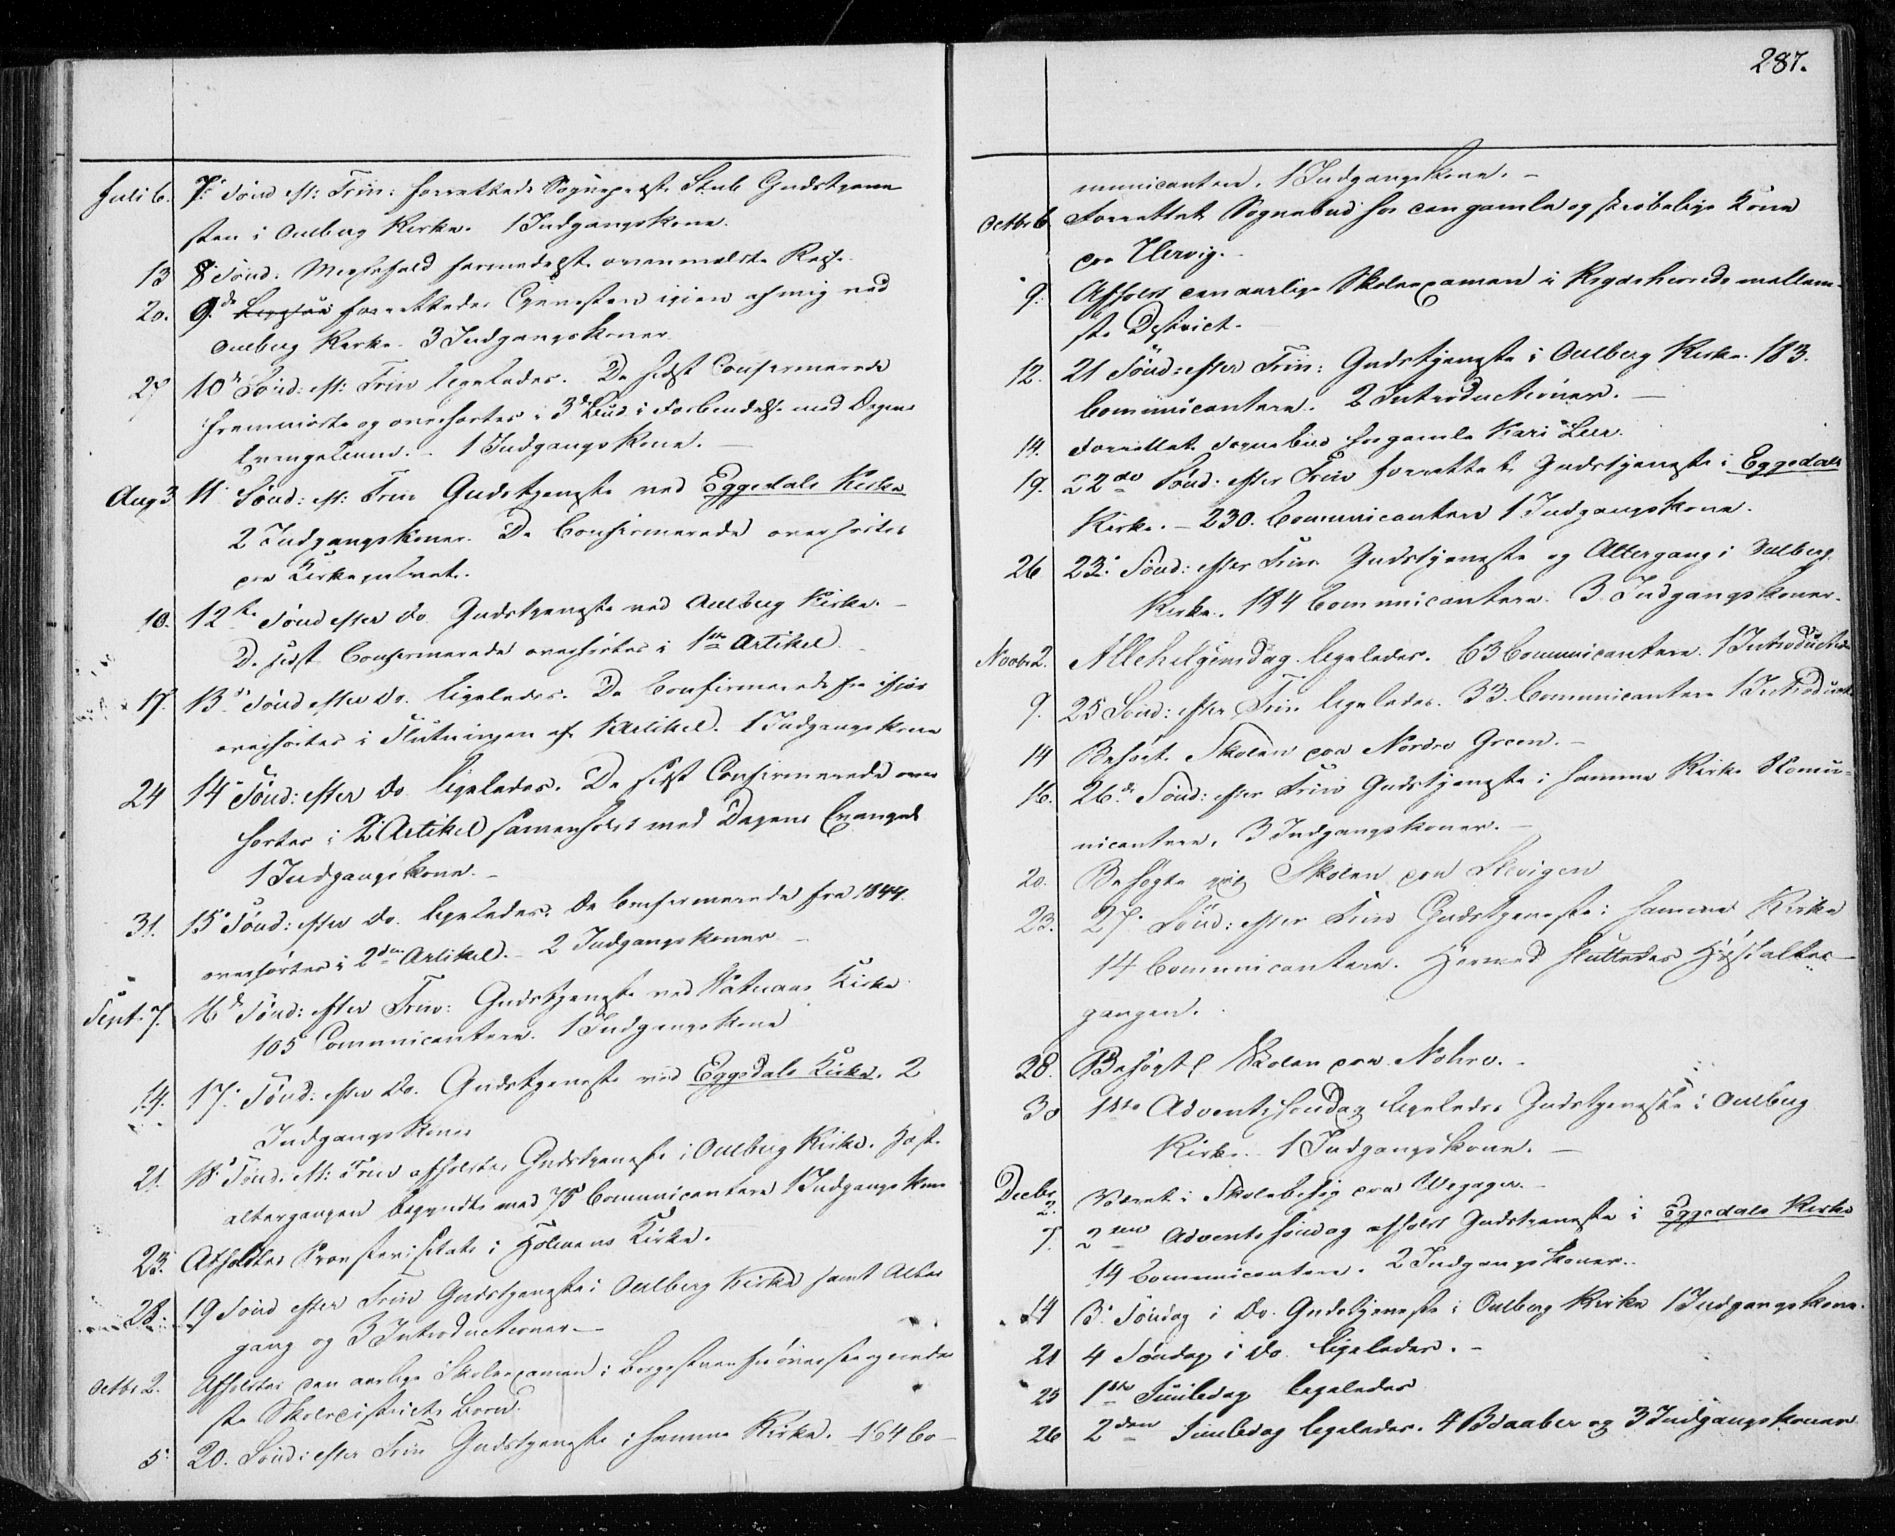 287.
Juli 6. 7: Sønd eft: Trin: forrettede Sognepræst Stub Gudstjene
sten i Aulberg Kirke. 1 Indgangskone.
13 8 Sønd. Messefald formedelst ovenmeldte Reise.
20. 9de forrettedes Tjenesten igien af mig ved
Aulberg Kirke. 3 Indgangskoner
27 10de Sønd: eft: Trin ligeledes. De sidst Confirmerede
fremmødte og overhørtes i 3die Bud i Forbindelse med Dagens
Evangelium. 1 Indgangskone.
Aug 3 11 Sønd: eft: Trin Gudstjeneste ved Eggedals Kirke
2 Indgangskoner. De Confirmerede overhørtes
paa Kirkegulvet.
10. 12te Sønd efter Do. Gudstjeneste ved Aulberg Kirke.
De sidst Confirmerede overhørtes i 1ste Artikel
17. 13de Sønd efter Do. ligeledes. De Confirmerede fra ifjor
overhørtes i Slutningen af 1 Artikel. 1 Indgangskone
24 14de Sønd: efter Do ligeledes. De sidst Confirmerede over
hørtes i 2 Artikel sammenholdt med Dagens Evangel
1 Indgangskone.
31. 15de Sønd: efter Do. ligeledes. De Confirmerede fra 1844.
overhørtes i 2den Artikel. 2 Indgangskoner
Sept. 7. 16de Sønd: efter Trin: Gudstjeneste ved Kirke
105 Communicantere. 1 Indgangskone
14. 17: Sønd: efter Do. Gudstjeneste ved Eggedals Kirke. 2
Indgangskoner
21. 18de Sønd. eft: Trin afholdtes Gudstjeneste i Aulberg Kirke. Høst-
altergangen begyndte med 75 Communicantere 1 Indgangskone
23. Afholdtes Provstevisitats i Holmens Kirke.
28. 19 Sønd efter Trin Gudstjeneste i Aulberg Kirke samt Alter
gang og 3 Introductioner.
Octbr 2. Afholdtes den aarlige Skoleexamen i for øverste og neder
ste Skoledistricts Børn.
5: 20. Sønd: efter Trin Gudstjeneste i samme Kirke. 164 Co-
municantere. 1 Indgangskone.
Octbr 6 Forrettet Sognebud hos en gammel og skrøbelige Kone
paa
9: Afholdt den aarlige Skoleexamen i mellem-
ste District.
12. 21 Sønd: efter Trin: Gudstjeneste i Aulberg Kirke. 183.
Communicantere. 2 Introductioner.
14. Forrettet Sognebud hos gamle Kari
19. 22de Sønd: efter Trin forrettet Gudstjeneste i Eggedals
Kirke. 230. Communicantere 1 Indgangskone.
26 23: Sønd: efter Trin Gudstjeneste og Altergang i Aulberg
Kirke. 184 Communicantere. 3 Indgangskoner.
Novbr 2. Allehelgensdag ligeledes. 63 Communicantere. 1 Introduction
9. 25 Sønd: efter Trin ligeledes. 33. Communicantere 1 Introduct
14 Besøgt Skolen paa Nordre Green.
16. 26de Sønd: efter Trin Gudstjeneste i samme Kirke
nicantere, 3 Indgangskoner.
20. Besøgte Skolen paa
23. 27. Sønd: efter Trin Gudstjeneste i samme Kirke
14 Communicantere. Hermed sluttedes Høstalter-
gangen.
28. Besøgt Skolen paa
30 1ste Adventssøndag ligeledes Gudstjeneste i Aulberg
Kirke. 1 Indgangskone.
Decbr
2. Været i Skolebesøg paa
7. 2den Adventssøndag afholdt Gudstjeneste i Eggedals Kirke
14 Communicantere. 2 Indgangskoner.
14 3: Søndag i Do. Gudstjeneste i Aulberg Kirke 1 Indgangskone.
21 4 Søndag i Do. ligeledes.
25 1ste Juuledag ligeledes
26 2den Juuledag ligeledes. 4 Daaber og 3 Indgangskoner